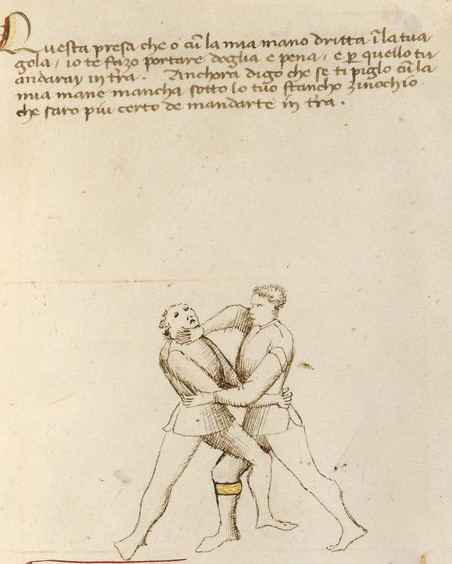 Questa presa che o cū la mia mano dritta ī la tua
gola / io te fazo portare doglia e pena / e ꝑ quello tu
andarai in tr̄a. Anchora digo che se ti piglo cū la
mia mane mancha sotto lo tuo stancho zinochio
che saro piu certo de mandarte in tr̄a.